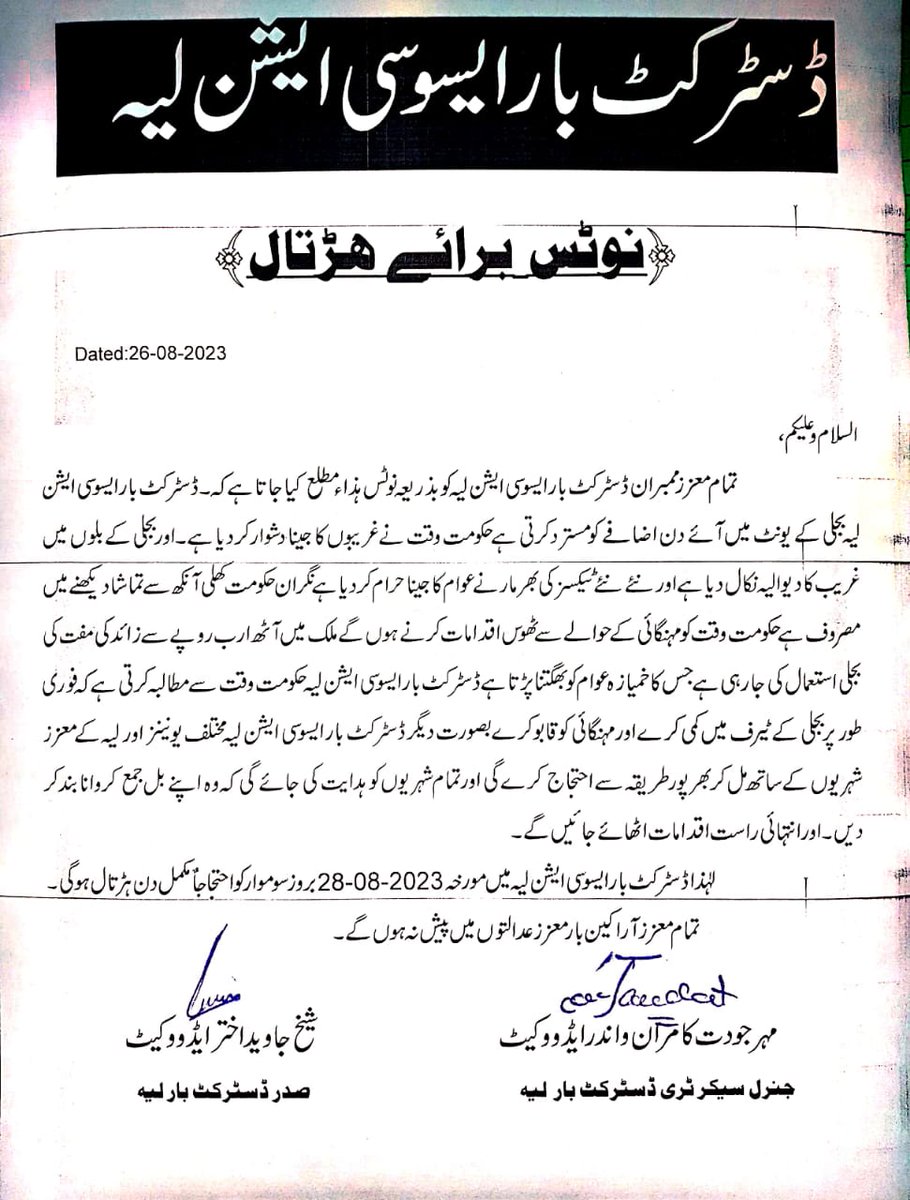 ڈسٹرکٹ بار ایسوسی ایشن لیہ
نوٹس برائے ھڑتال
Dated:26-08-2023
السلام و علیکم،
تمام معزز ممبران ڈسٹرکٹ بار ایسوسی ایشن لیہ کو بذریعہ نوٹس ہذاء مطلع کیا جاتا ہے کہ۔ ڈسٹرکٹ بار ایسوسی ایشن
لیہ بجلی کے یونٹ میں آئے دن اضافے کو مسترد کرتی ہے حکومت وقت نے غریبوں کا جینا دشوار کر دیا ہے۔ اور بجلی کے بلوں میں
غریب کا دیوالیہ نکال دیا ہے اور نئے نئے ٹیکسز کی بھر مار نے عوام کا جینا حرام کر دیا ہے نگران حکومت کھلی آنکھ سے تماشا دیکھنے میں
مصروف ہے حکومت وقت کو مہنگائی کے حوالے سے ٹھوس اقدامات کرنے ہوں گے ملک میں آٹھ ارب روپے سے زائد کی مفت کی
بجلی استعمال کی جارہی ہے جس کا خمیازہ عوام کو بھگتنا پڑتا ہے ڈسٹرکٹ بار ایسوسی ایشن لیہ حکومت وقت سے مطالبہ کرتی ہے کہ فوری
طور پر بجلی کے ٹیرف میں کمی کرے اور مہنگائی کو قابو کرے بصورت دیگر ڈسٹرکٹ بار ایسوسی ایشن لیہ مختلف یونینز اور لیہ کے معزز
شہریوں کے ساتھ مل کر بھر پور طریقہ سے احتجاج کرے گی اور تمام شہریوں کو ہدایت کی جائے گی کہ وہ اپنے بل جمع کروانا بند کر
دیں۔ اور انتہائی راست اقدامات اٹھائے جائیں گے۔
لہٰذا ڈسٹرکٹ بار ایسوسی ایشن لیہ میں مورخہ 28-08-2023 بروز سوموار کو احتجاجاً مکمل دن ہڑتال ہوگی۔
تمام معزز آراکین بار معزز عدالتوں میں پیش نہ ہوں گے۔
مہر جودت کامران واندر ایڈووکیٹ
جنرل سیکرٹری ڈسٹرکٹ بار لیہ
شیخ جاوید اختر ایڈووکیٹ
صدر ڈسٹرکٹ بار لیہ